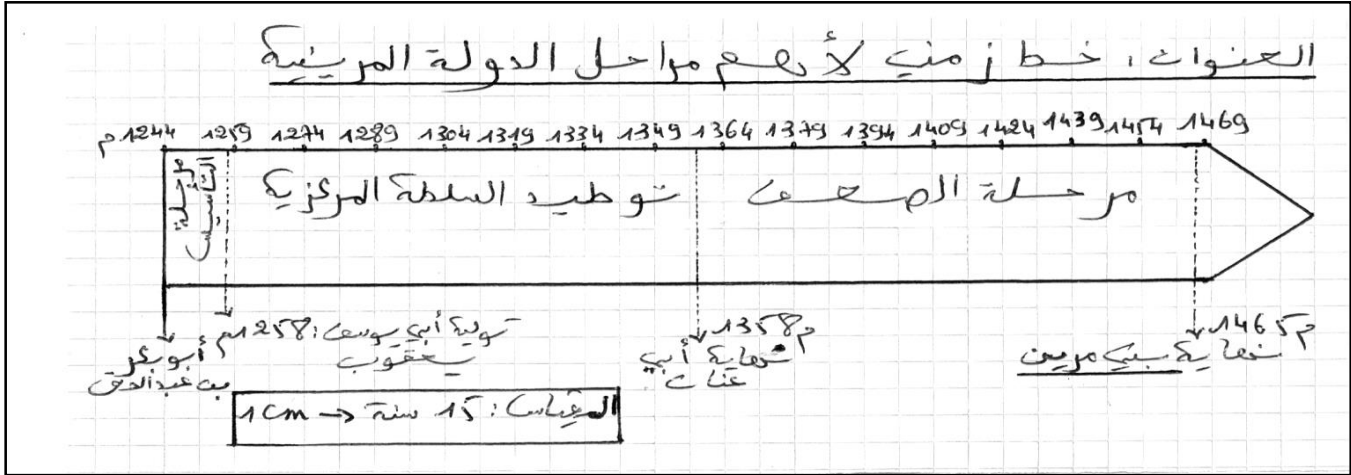 العنوان: خط زمني لأهم مراحل الدولة المرينية
1244م 1259 1274 1289 1304 1319 1334 1349 1364 1379 1394 1409 1424 1439 1454 1469
مرحلة التأسيس
توطيد السلطة المركزية
مرحلة الضعف
أبو بكر
بن عبد الحق
1258م: تولية أبي يوسف
يعقوب
1358م
نهاية أبي
عنان
1465م
نهاية بني مرين
المقياس: 15 سنة → 1cm